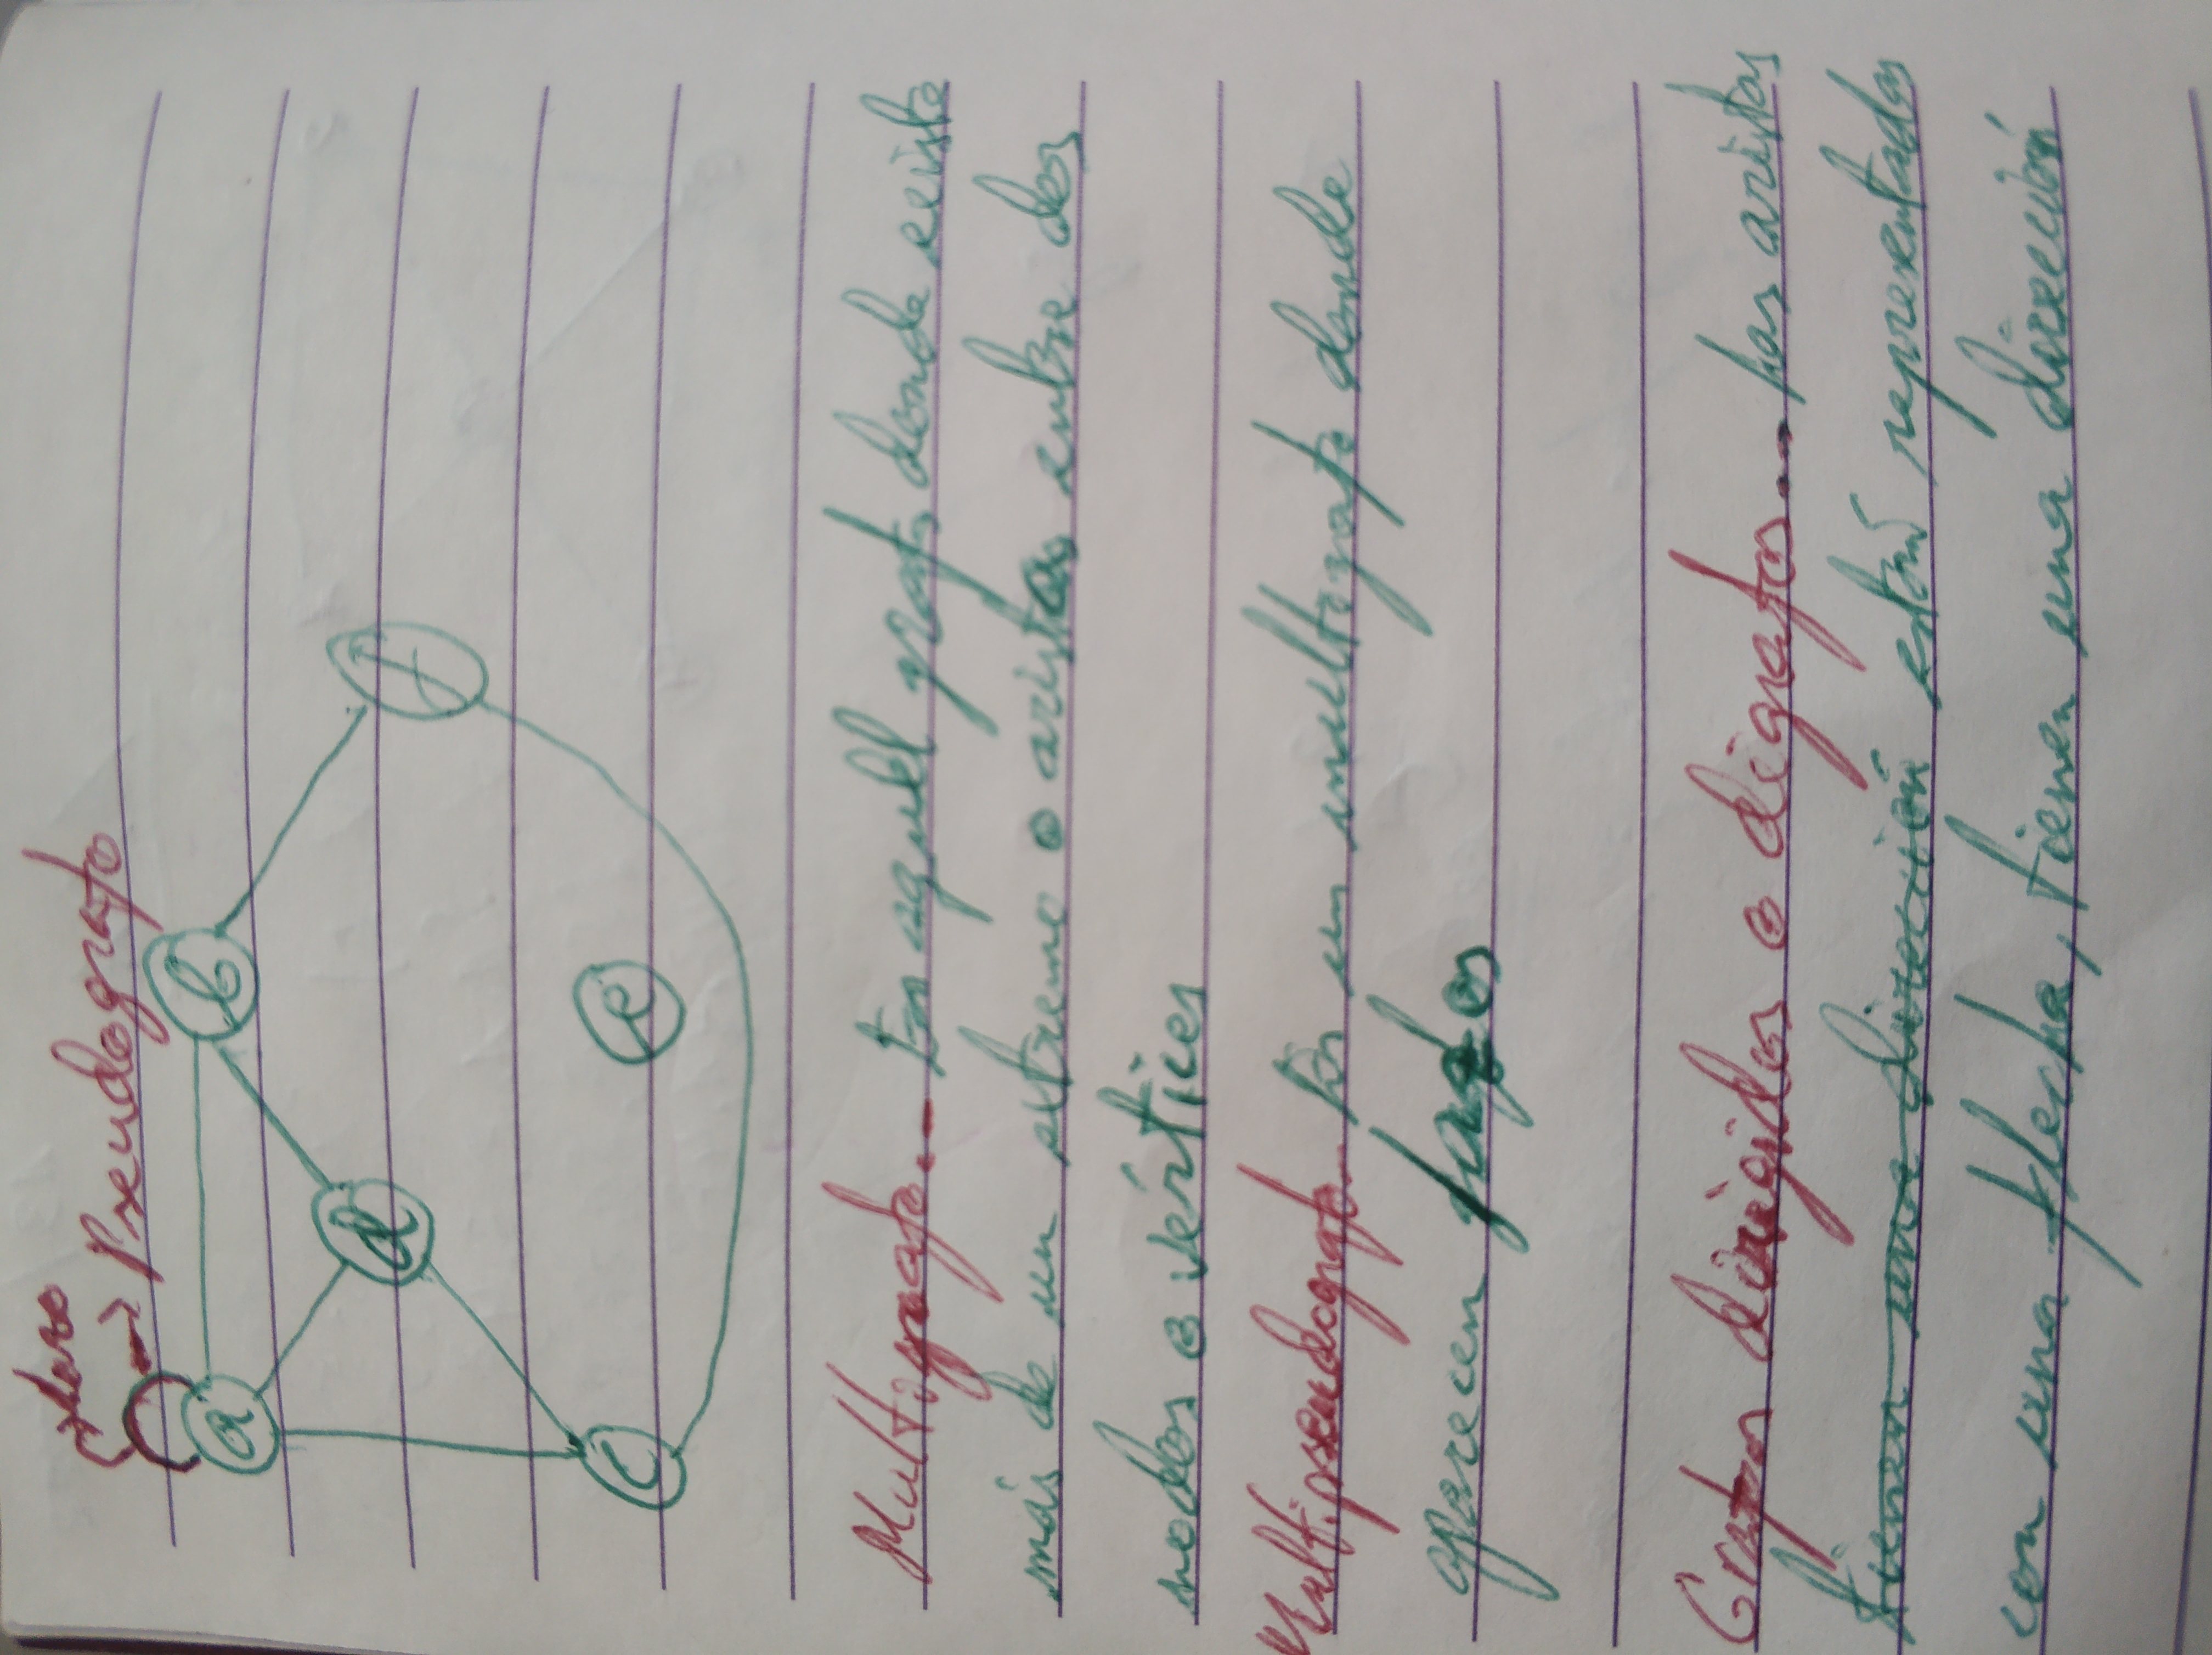 Lazo
→ Pseudografo
a
b
d
f
c
e
Multografo.-- Es aquél grafo donde existe
más de un extremo o aristas entre dos
nodos o vértices
Multipseudografo.- Es un multografo donde
aparecen lazos
Grafos dirigidos o digrafos.-- Las aristas
tienen una dirección están representadas
con una flecha, tienen una dirección